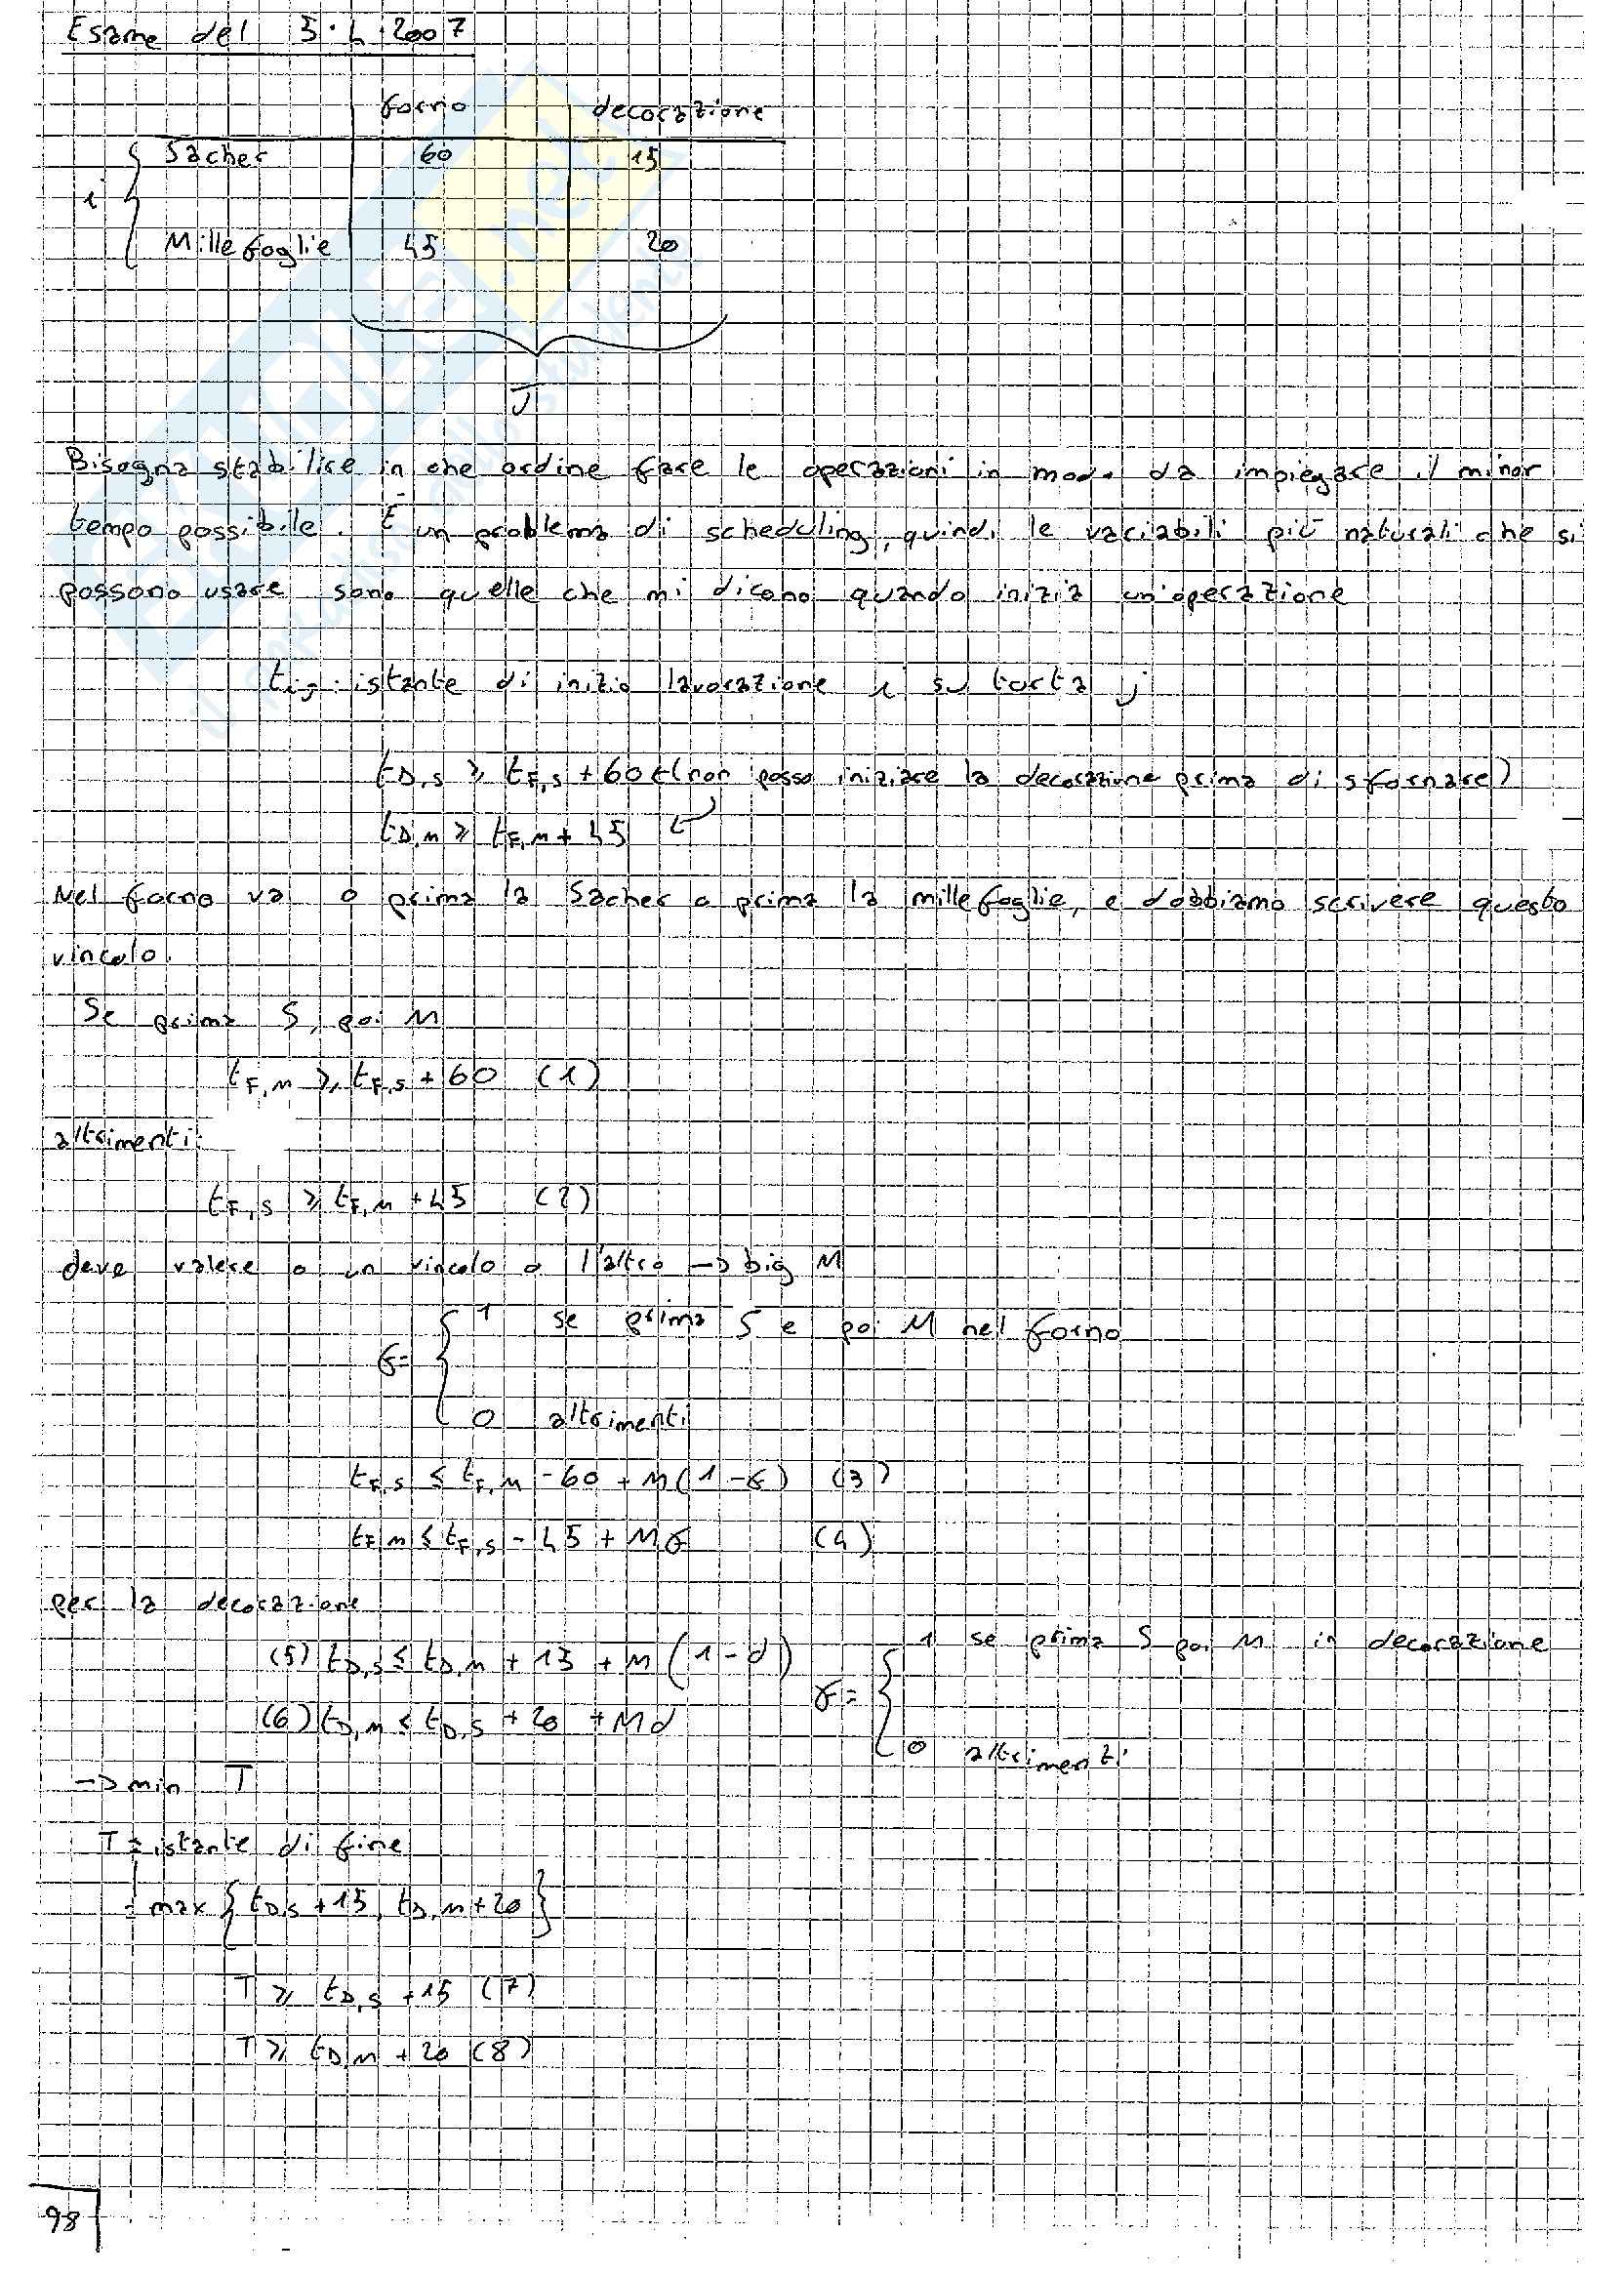 Esame del 5.4.2007
forno decorazione
Sacher 60 15
i
Millefoglie 45 20
J
Bisogna stabilire in che ordine fare le operazioni in modo da impiegare il minor
tempo possibile. È un problema di scheduling, quindi le variabili più naturali che si
possono usare sono quelle che mi dicono quando inizia un'operazione
tij: istante di inizio lavorazione i su torta j
tD,S ≥ tF,S + 60 ←(non posso iniziare la decorazione prima di sfornare)
tD,M ≥ tF,M + 45 ←
Nel forno va o prima la Sacher o prima la millefoglie, e dobbiamo scrivere questo
vincolo.
Se prima S, poi M
tF,M ≥ tF,S + 60 (1)
altrimenti:
tF,S ≥ tF,M + 45 (2)
deve valere o un vincolo o l'altro → big M
f= { 1 se prima S e poi M nel forno
0 altrimenti
tF,S ≤ tF,M - 60 + M(1-f) (3)
tF,M ≤ tF,S - 45 + Mf (4)
per la decorazione
(5) tD,S ≤ tD,M + 15 + M(1-d) = { 1 se prima S poi M in decorazione
(6) tD,M ≤ tD,S + 20 + Md
0 altrimenti
→ min T
T = istante di fine
= max { tD,S + 15, tD,M + 20 }
T ≥ tD,S + 15 (7)
T ≥ tD,M + 20 (8)
98